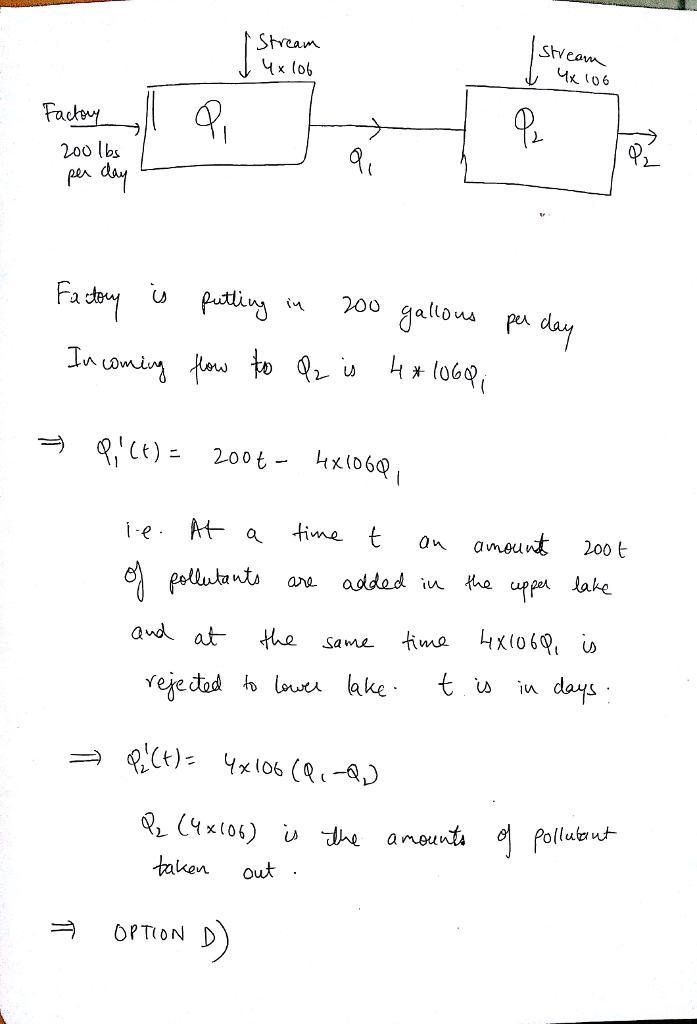 Stream
4 x 106
Stream
4x 106
Factory
200 lbs
per day
Q1
q1
Q2
Q2
Factory is putting in 200 gallons per day
Incoming flow to Q2 is 4 * 106Q1
⇒ Q1'(t) = 200t - 4x106Q1
i.e. At a time t an amount 200t
of pollutants are added in the upper lake
and at the same time 4x106Q1 is
rejected to lower lake. t is in days.
⇒ Q2'(t) = 4x106 (Q1-Q2)
Q2 (4x106) is the amounts of pollutant
taken out.
⇒ OPTION D)